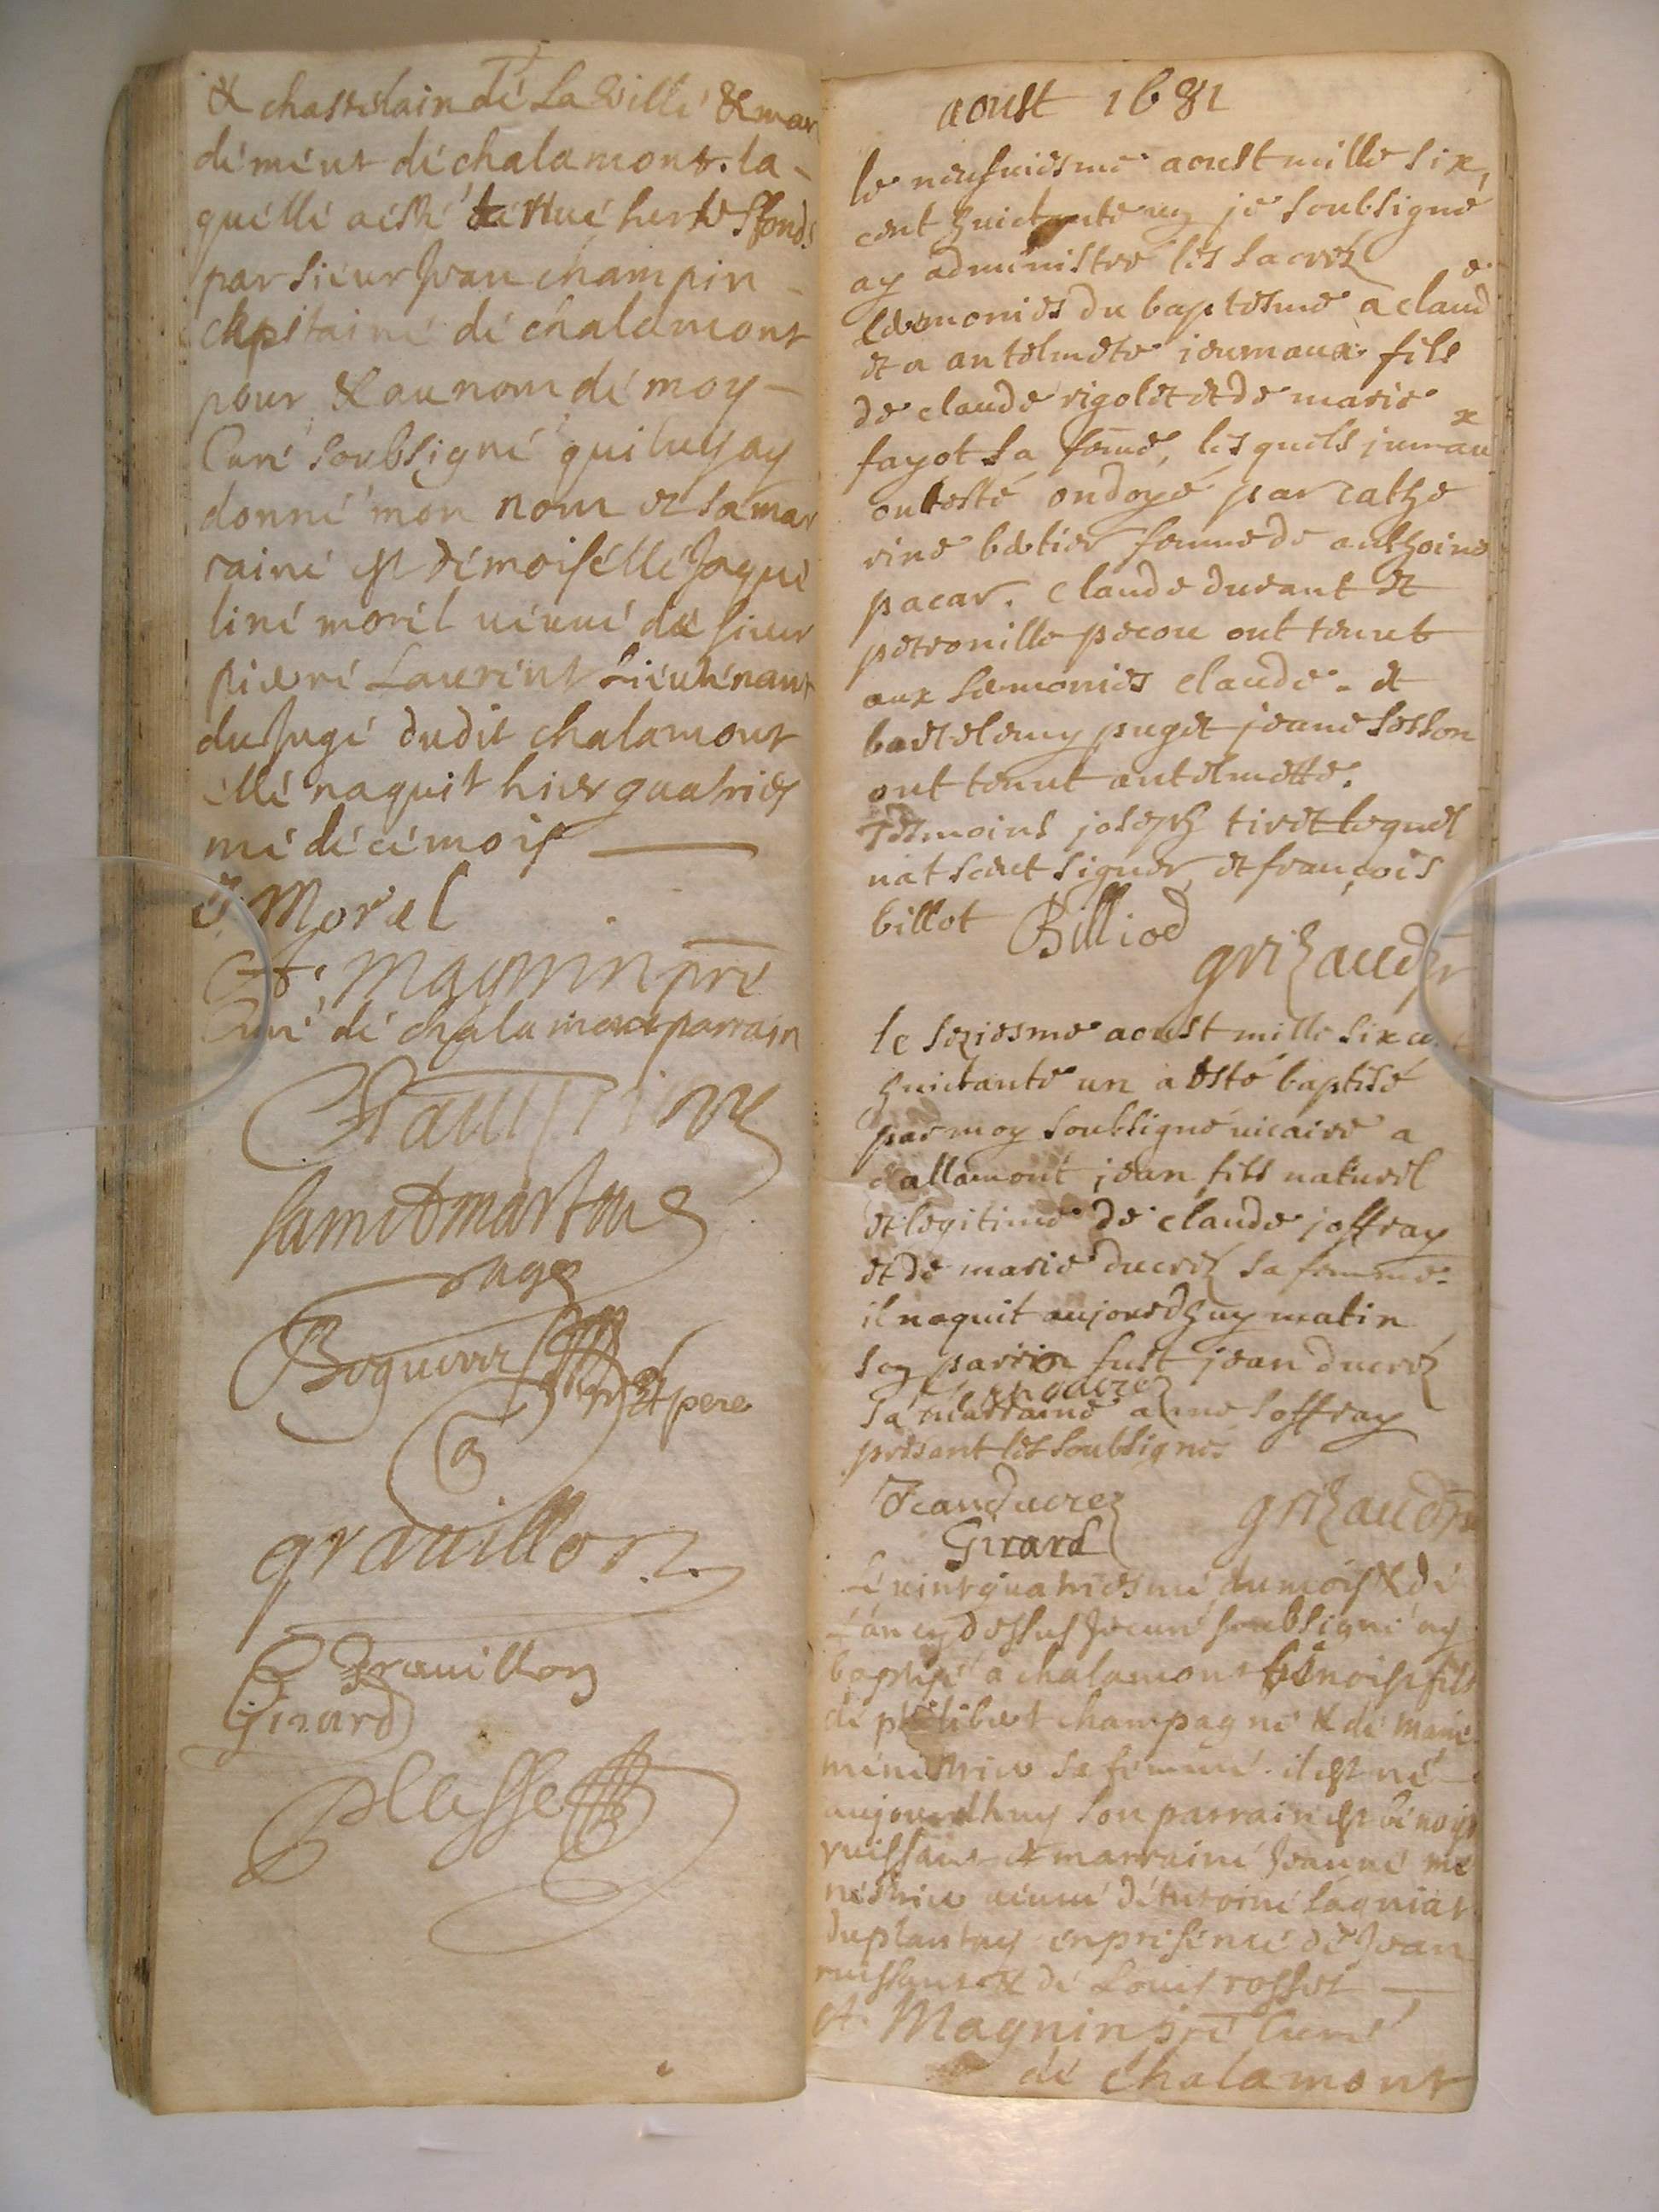 & chastelain dé La Villé & man
démént dé chalamont. la-
quéllé aésté ténué sur lés ffonds
par Sieur Jean champin -
capitainé dé chalamont
pour & au nom dé moy -
Curé soubsigné qui luy ay
donné mon nom et sa mar
rainé est démoiséllé Jaqué
liné morél véuvé du sieur
piérré Laurént Liéuténant
du Jugé dudit chalamont
éllé naquit hier quatriés
mé dé cé mois
J. Morel
A. Magnin pré
Curé dé chalamont parrain
Champion
Rage
et pere
gravillon
C Gravillon
Girard
plasse
aoust 1681
le neufviesme aoust mille six
cent huictante ung je soubsigné
ay administré les sacréz
cæremonies du baptesme a claude
et a antelmete jeumaux fils
de claude rigolet et de marie
fayot sa feme, lesquels jumaux
ont esté ondoyé par cathe
rine bætier femme de anthoine
pacar. Claude durant et
petronille pecou ont tenut
aux særmonies claude - et
bartelemy puget jeane sosson
ont tenut antelmette.
Tesmoins joseph tivet lequel
nat sceut signer, et françois
billot Billiod
grizaud pr
le seziesme aoust mille six cent
huictante un a esté baptisé
par moy soubsigné vicaire a
challamont jean fils naturel
et legitime de claude joffray
et de marie ducréz sa femme.
il naquit aujourdhuy matin
son parrin fust jean ducréz
sa marraine anne joffray
présant les soubsignés
Jean ducrez
grizaud pr
Girard
Lé vint quatriesmé du mois & dé
L'an cy dessus Jé curé soubsigné ay
baptisé a chalamont bénoist fils
dé philibert champagné & dé marié
ménéstrier sa fémmé. il est né
aujourdhuy son parrain est bénoist
ruissant & marrainé Jeanné mé
néstrier véuvé d'Antoiné Lagniat
duplantay én préséncé dé Jean
ruissant & dé Louis rosset
A. Magnin pré Curé
dé chalamont